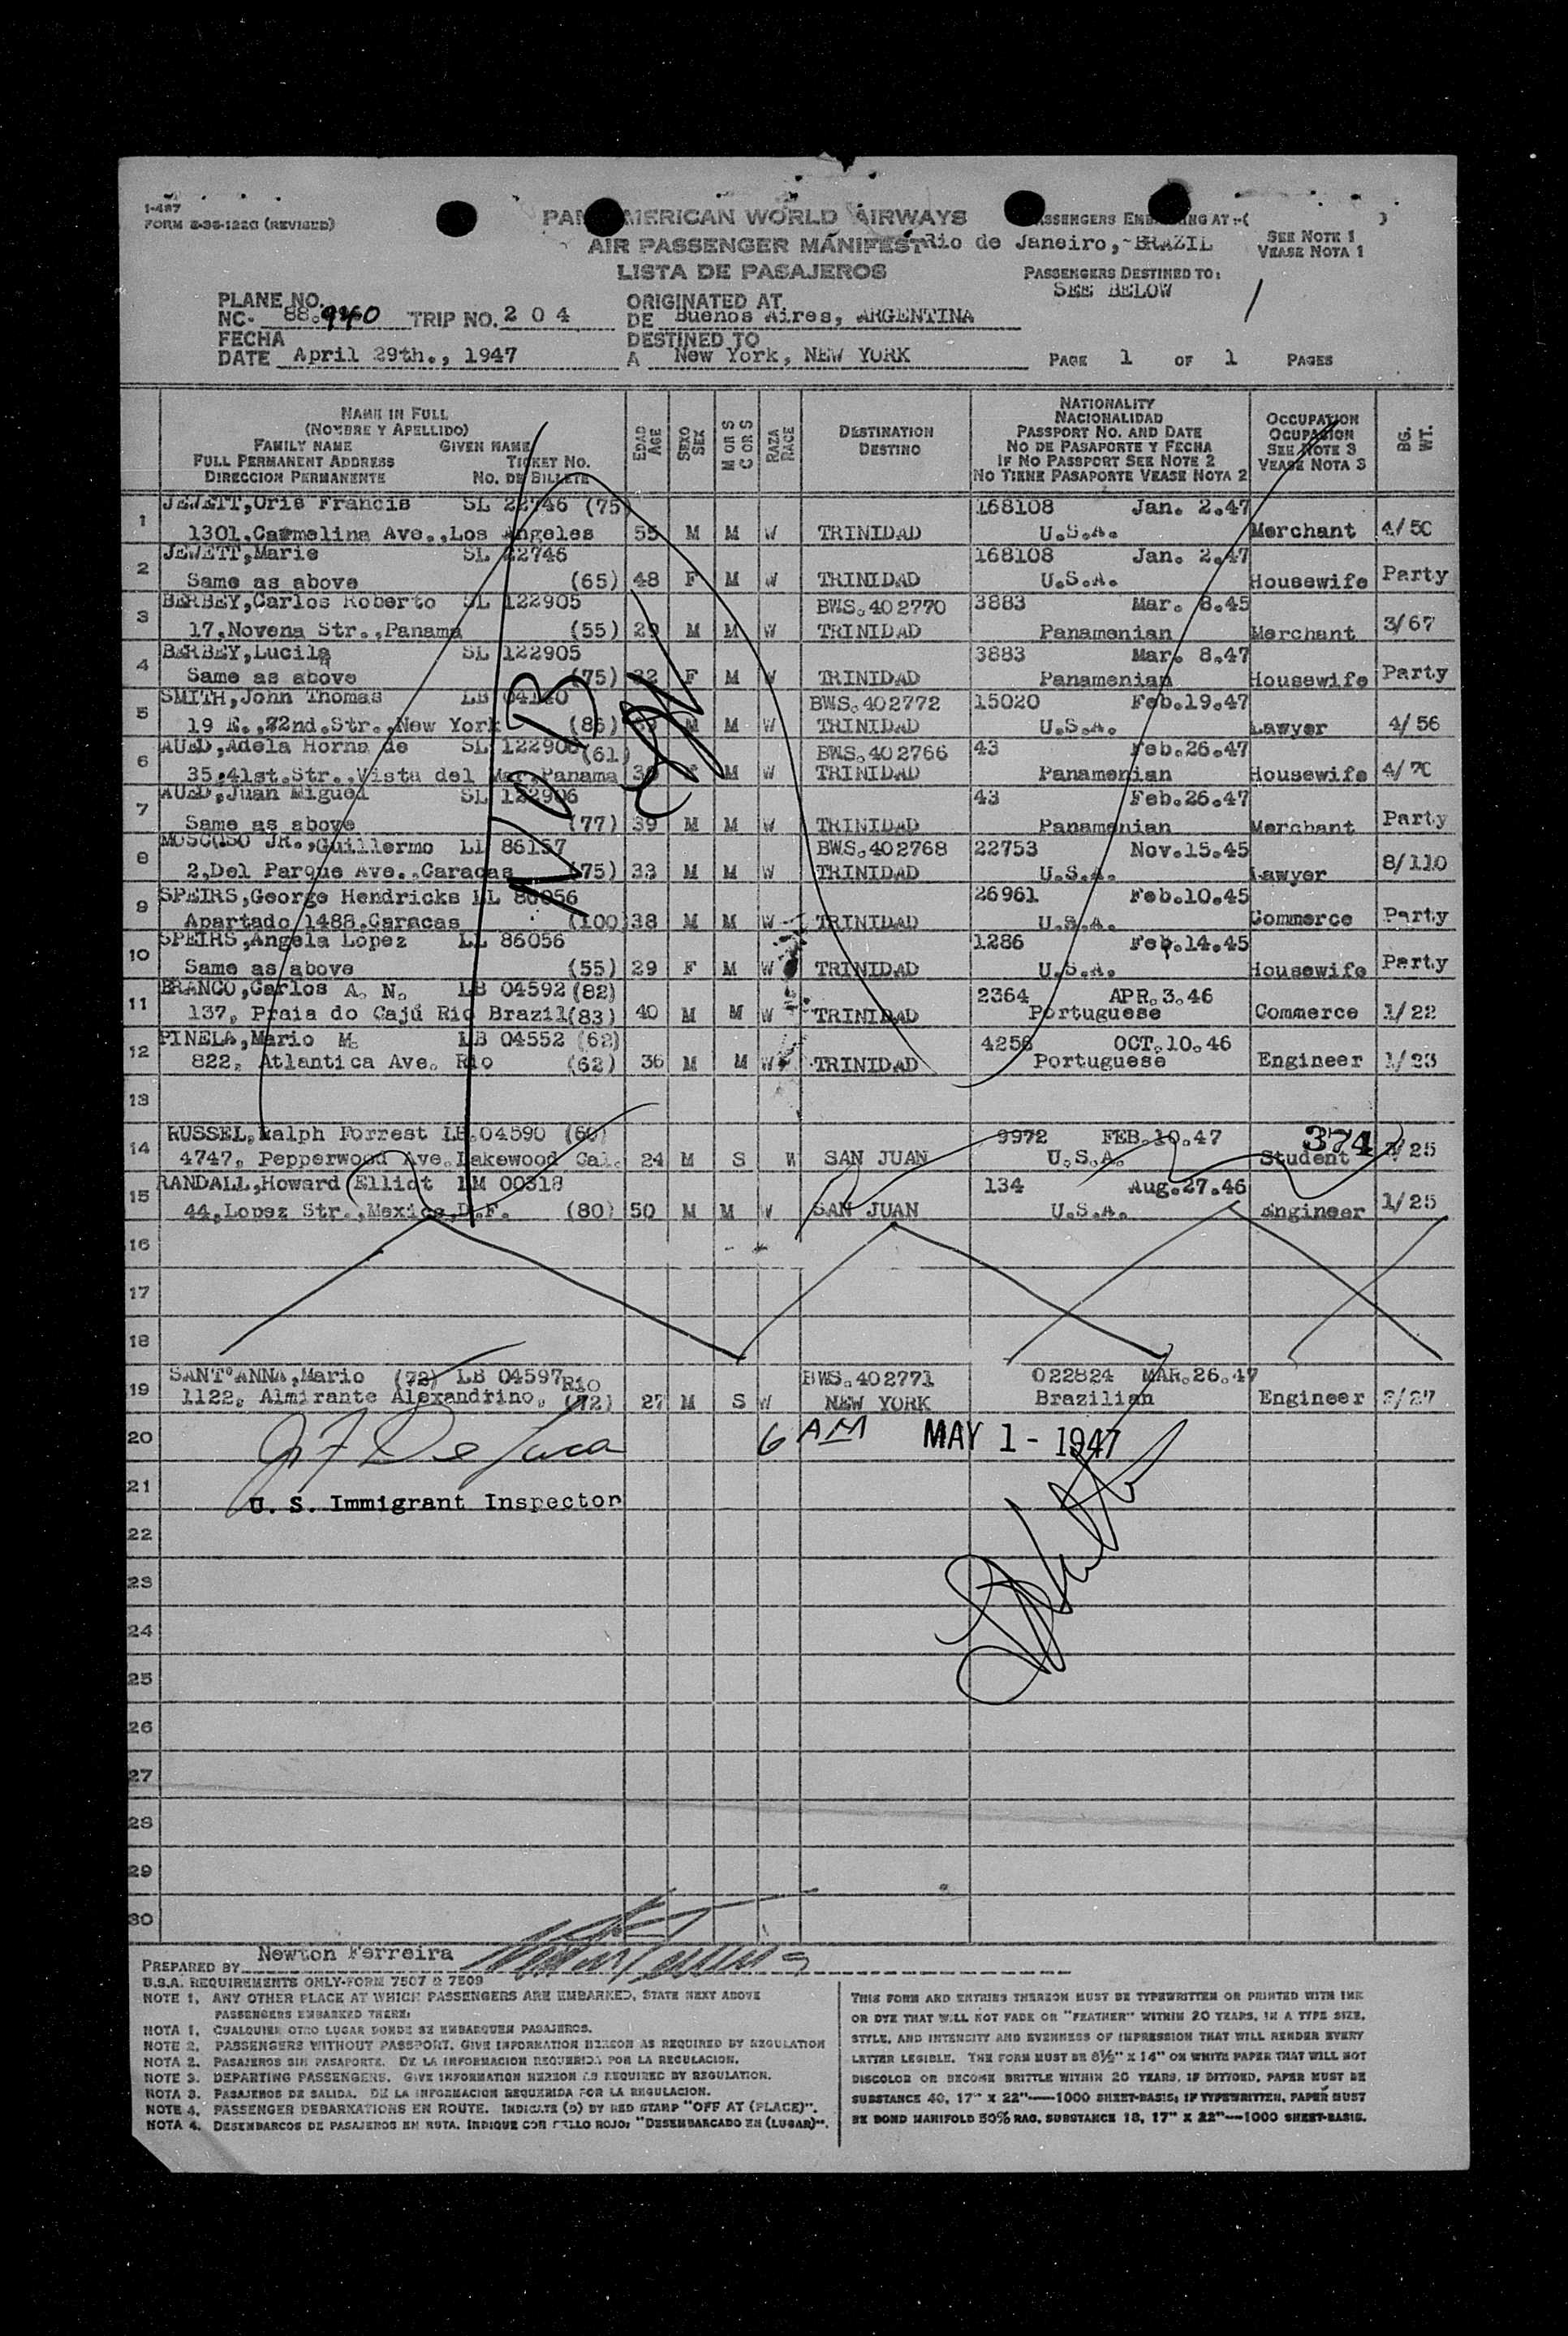 I-487
FORM 2-35-122G (REVISED)
PAN AMERICAN WORLD AIRWAYS
PASSENGERS EMBARKING AT :-( )
AIR PASSENGER MANIFEST Rio de Janeiro, BRAZIL
SEE NOTE 1
VEASE NOTA 1
LISTA DE PASAJEROS
PASSENGERS DESTINED TO:
SEE BELOW
PLANE NO. ORIGINATED AT
NC- 88.940 TRIP NO. 2 0 4 DE Buenos Aires, ARGENTINA
FECHA DESTINED TO
DATE April 29th., 1947 A New York, NEW YORK PAGE 1 OF 1 PAGES
NAME IN FULL
(NOMBRE Y APELLIDO)
FAMILY NAME GIVEN NAME
FULL PERMANENT ADDRESS TICKET NO.
DIRECCION PERMANENTE NO. DE BILLETE
EDAD AGE
SEXO SEX
M OR S C OR S
RAZA RACE
DESTINATION
DESTINO
NATIONALITY
NACIONALIDAD
PASSPORT NO. AND DATE
NO DE PASAPORTE Y FECHA
IF NO PASSPORT SEE NOTE 2
NO TIENE PASAPORTE VEASE NOTA 2
OCCUPATION
OCUPASION
SEE NOTE 3
VEASE NOTA 3
BG. WT.
JEWETT,Oris Francis SL 22746 (75) 168108 Jan. 2.47
1 1301,Carmelina Ave.,Los Angeles 55 M M W TRINIDAD U.S.A. Merchant 4/50
JEWETT,Marie SL 22746 168108 Jan. 2.47
2 Same as above (65) 48 F M W TRINIDAD U.S.A. Housewife Party
BERBEY,Carlos Roberto SL 122905 BWS.402770 3883 Mar. 8.45
3 17,Novena Str.,Panama (55) 29 M M W TRINIDAD Panamenian Merchant 3/67
BERBEY,Lucila SL 122905 3883 Mar. 8.47
4 Same as above (75) F M W TRINIDAD Panamenian Housewife Party
SMITH,John Thomas LB 04140 BWS.402772 15020 Feb.19.47
5 19 E.,72nd.Str.,New York (86) M M W TRINIDAD U.S.A. Lawyer 4/56
AUED,Adela Horna de SL 122906 (61) BWS.402766 43 Feb.26.47
6 35,41st.Str.,Vista del Mar,Panama M W TRINIDAD Panamenian Housewife 4/70
AUED,Juan Miguel SL 122906 43 Feb.26.47
7 Same as above (77) 39 M M W TRINIDAD Panamenian Merchant Party
MOSCOSO JR.,Guillermo LL 86157 BWS.402768 22753 Nov.15.45
8 2,Del Parque Ave.,Caracas (75) 33 M M W TRINIDAD U.S.A. Lawyer 8/110
SPEIRS,George Hendricks LL 86056 26961 Feb.10.45
9 Apartado 1488.Caracas (100) 38 M M W TRINIDAD U.S.A. Commerce Party
SPEIRS,Angela Lopez LL 86056 1286 Feb.14.45
10 Same as above (55) 29 F M W TRINIDAD U.S.A. Housewife Party
BRANCO,Carlos A. N. LB 04592 (82) 2364 APR.3.46
11 137, Praia do Cajú Rio Brazil (83) 40 M M W TRINIDAD Portuguese Commerce 1/22
PINELA,Mario M. LB 04552 (62) 4256 OCT.10.46
12 822, Atlantica Ave. Rio (62) 36 M M W TRINIDAD Portuguese Engineer 1/23
13
NOB
RUSSEL,Ralph Forrest LB.04590 (60) 9972 FEB.10.47 374
14 4747, Pepperwood Ave.Lakewood Cal. 24 M S W SAN JUAN U.S.A. Student 1/25
RANDALL,Howard Elliot LM 00318 134 Aug.27.46
15 44,Lopez Str.,Mexico,D.F. (80) 50 M M W SAN JUAN U.S.A. Engineer 1/25
16
17
18
SANT'ANNA,Mario (72) LB 04597 Rio BWS.402771 022824 MAR.26.47
19 1122, Almirante Alexandrino, (72) 27 M S W NEW YORK Brazilian Engineer 2/27
20 6 AM MAY 1 - 1947
De Luca
21
U. S. Immigrant Inspector
22
23
24
25
26
27
28
29
30
Newton Ferreira
PREPARED BY
U.S.A. REQUIREMENTS ONLY-FORM 7507 & 7509
NOTE 1. ANY OTHER PLACE AT WHICH PASSENGERS ARE EMBARKED, STATE NEXT ABOVE
PASSENGERS EMBARKED THERE:
NOTA 1. CUALQUIER OTRO LUGAR DONDE SE EMBARQUEN PASAJEROS.
NOTE 2. PASSENGERS WITHOUT PASSPORT. GIVE INFORMATION HEREON AS REQUIRED BY REGULATION
NOTA 2. PASAJEROS SIN PASAPORTE. DE LA INFORMACION REQUERIDA POR LA REGULACION.
NOTE 3. DEPARTING PASSENGERS. GIVE INFORMATION HEREON AS REQUIRED BY REGULATION.
NOTA 3. PASAJEROS DE SALIDA. DE LA INFORMACION REQUERIDA POR LA REGULACION.
NOTE 4. PASSENGER DEBARKATIONS EN ROUTE. INDICATE (D) BY RED STAMP "OFF AT (PLACE)".
NOTA 4. DESEMBARCOS DE PASAJEROS EN RUTA. INDIQUE CON SELLO ROJO: "DESEMBARCADO EN (LUGAR)".
THIS FORM AND ENTRIES THEREON MUST BE TYPEWRITTEN OR PRINTED WITH INK
OR DYE THAT WILL NOT FADE OR "FEATHER" WITHIN 20 YEARS, IN A TYPE SIZE,
STYLE, AND INTENCITY AND EVENNESS OF IMPRESSION THAT WILL RENDER EVERY
LETTER LEGIBLE. THE FORM MUST BE 8½" X 14" ON WHITE PAPER THAT WILL NOT
DISCOLOR OR BECOME BRITTLE WITHIN 20 YEARS, IF DITTOED, PAPER MUST BE
SUBSTANCE 40, 17" X 22"—1000 SHEET-BASIS; IF TYPEWRITTEN, PAPER MUST
BE BOND MANIFOLD 50% RAG, SUBSTANCE 18, 17" X 22"—1000 SHEET-BASIS.